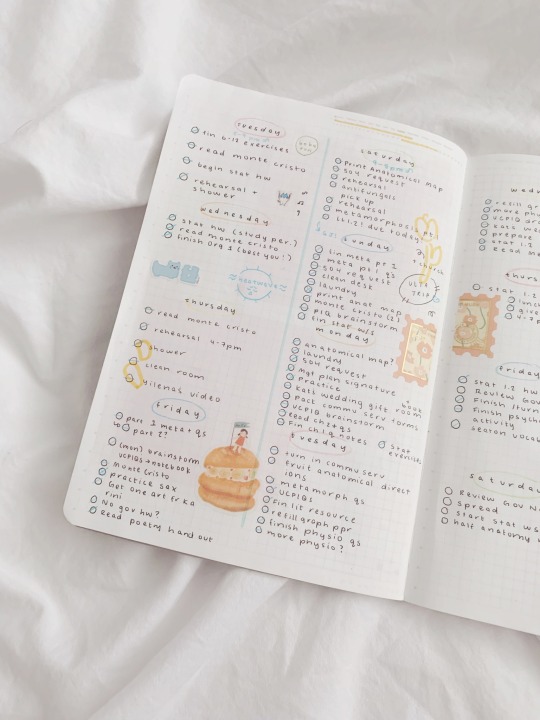 tuesday
fin 6-12 exercises
read monte cristo
begin stat hw
rehearsal +
shower
wednesday
stat hw (study per.)
read monte cristo
finish org 1 (best you!)
heatwave
thursday
read monte cristo
rehearsal 4-7pm
shower
clean room
milena's video
friday
part 1 meta + qs
part 2?
(mon) brainstorm
UCPIB + notebook
monte cristo
practice sax
Get one art fr ka
rini
No gov hw?
Read poetry hand out
saturday
print Anatomical map
SOY request
rehearsal
antifungals
pick up
rehearsal
metamorphosis
(1.2! due today)
sunday
fin meta pr 2
meta pt 1 qs
SOY request
clean desk
laundry
print anat map
monte cristo (2)
PIQ brainstorm
fin stat w/s
church
UCLA
Test
monday
anatomical map?
laundry
SOY request
Mgt plan signature
Practice
kats wedding gift book
pack commu serv forms room
UCPIB brainstorm
read ch2+qs
Fin ch 1 q notes
Stat
exercise
tuesday
turn in commu serv
fruit anatomical direct
ions
metamorph qs
UCPIBs
Fin lit resource
refill graph ppr
finish physio qs
more physio?
wed
refill gr
more phy
UCPIB dr
kats wed
prepare
stat 1.2
Read me
thurs
stat 1.2
friday
Stat 1.2 hw
Review Gov
Finish
Finish psych
activity
seaton vocab
saturday
Review Gov N
spread
start stat ws
half anatomy